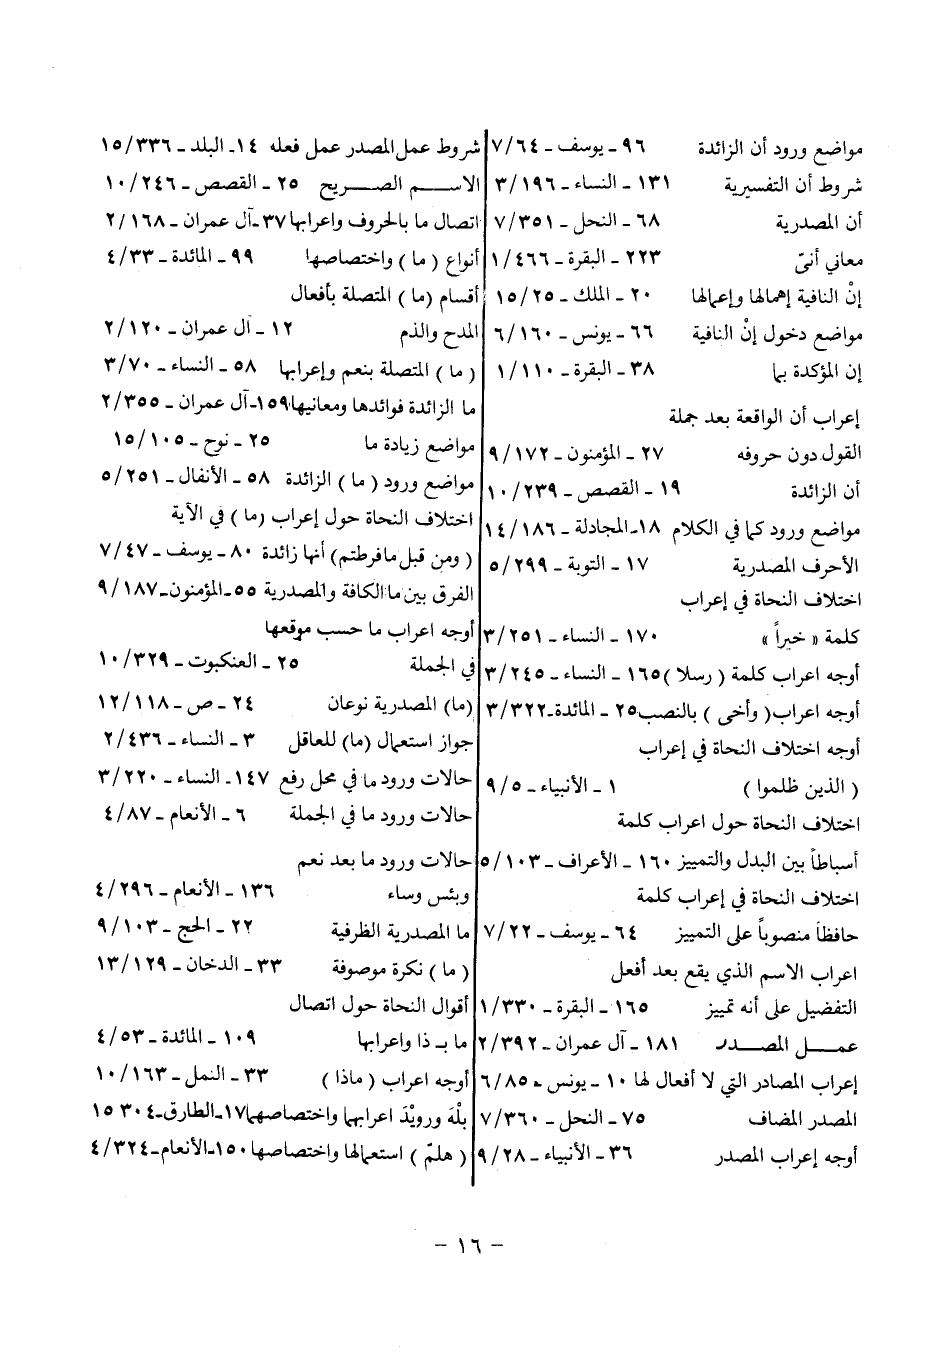 مواضع ورود أن الزائدة ٩٦ ـ يوسف ـ ٧/٦٤
شروط أن التفسيرية ١٣١ ـ النساء ـ ٣/١٩٦
أن المصدرية ٦٨ ـ النحل ـ ٧/٣٥١
معاني أنىّ ٢٢٣ ـ البقرة ـ ١/٤٦٦
إنْ النافية إهمالها وإعمالها ٢٠ ـ الملك ـ ١٥/٢٥
مواضع دخول إنْ النافية ٦٦ ـ يونس ـ ٦/١٦٠
إن المؤكدة بما ٣٨ ـ البقرة ـ ١/١١٠
إعراب أن الواقعة بعد جملة
القول دون حروفه ٢٧ ـ المؤمنون ـ ٩/١٧٢
أن الزائدة ١٩ ـ القصص ـ ١٠/٢٣٩
مواضع ورود كما في الكلام ١٨ـ المجادلة ـ ١٤/١٨٦
الأحرف المصدرية ١٧ ـ التوبة ـ ٥/٢٩٩
اختلاف النحاة في إعراب
كلمة « خيراً » ١٧٠ ـ النساء ـ ٣/٢٥١
أوجه اعراب كلمة ( رسلا ) ١٦٥ ـ النساء ـ ٣/٢٤٥
أوجه اعراب( وأخى ) بالنصب ٢٥ ـ المائدة ـ ٣/٣٢٢
أوجه اختلاف النحاة في إعراب
( الذين ظلموا ) ١ ـ الأنبياء ـ ٩/٥
اختلاف النحاة حول اعراب كلمة
أسباطاً بين البدل والتمييز ١٦٠ ـ الأعراف ـ ٥/١٠٣
اختلاف النحاة في إعراب كلمة
حافظاً منصوباً على التمييز ٦٤ ـ يوسف ـ ٧/٢٢
اعراب الاسم الذي يقع بعد أفعل
التفضيل على أنه تمييز ١٦٥ ـ البقرة ـ ١/٣٣٠
عمـــل المصـــدر ١٨١ ـ آل عمران ـ ٢/٣٩٢
إعراب المصادر التي لا أفعال لها ١٠ ـ يونس ـ ٦/٨٥
المصدر المضاف ٧٥ ـ النحل ـ ٧/٣٦٠
أوجه إعراب المصدر ٣٦ ـ الأنبياء ـ ٩/٢٨
شروط عمل المصدر عمل فعله ١٤ـ البلد ـ ١٥/٣٣٦
الاســـم الصـــريح ٢٥ ـ القصص ـ ١٠/٢٤٦
اتصال ما بالحروف واعرابها ٣٧ـ آل عمران ـ ٢/١٦٨
أنواع ( ما ) واختصاصها ٩٩ ـ المائدة ـ ٤/٣٣
أقسام (ما ) المتصلة بأفعال
المدح والذم ١٢ ـ آل عمران ـ ٢/١٢٠
( ما ) المتصلة بنعم وإعرابها ٥٨ ـ النساء ـ ٣/٧٠
ما الزائدة فوائدها ومعانيها ١٥٩ـ آل عمران ـ ٢/٣٥٥
مواضع زيادة ما ٢٥ ـ نوح ـ ١٥/١٠٥
مواضع ورود ( ما ) الزائدة ٥٨ ـ الأنفال ـ ٥/٢٥١
اختلاف النحاة حول إعراب (ما ) في الآية
( ومن قبل ما فرطتم) أنها زائدة ٨٠ ـ يوسف ـ ٧/٤٧
الفرق بين ما الكافة والمصدرية ٥٥ ـ المؤمنون ـ ٩/١٨٧
أوجه اعراب ما حسب موقعها
في الجملة ٢٥ ـ العنكبوت ـ ١٠/٣٢٩
(ما) المصدرية نوعان ٢٤ ـ ص ـ ١٢/١١٨
جواز استعمال (ما) للعاقل ٣ ـ النساء ـ ٢/٤٣٦
حالات ورود ما في محل رفع ١٤٧ـ النساء ـ ٣/٢٢٠
حالات ورود ما في الجملة ٦ ـ الأنعام ـ ٤/٨٧
حالات ورود ما بعد نعم
وبئس وساء ١٣٦ ـ الأنعام ـ ٤/٢٩٦
ما المصدرية الظرفية ٢٢ ـ الحج ـ ٩/١٠٣
( ما ) نكرة موصوفة ٣٣ ـ الدخان ـ ١٣/١٢٩
أقوال النحاة حول اتصال
ما بـ ذا واعرابها ١٠٩ ـ المائدة ـ ٤/٥٣
أوجه اعراب ( ماذا ) ٣٣ ـ النمل ـ ١٠/١٦٣
بلْهَ ورويْدَ اعرابها واختصاصها ١٧ـ الطارق ـ ٣٠٤ ١٥
( هلمّ ) استعمالها واختصاصها ١٥٠ـ الأنعام ـ ٤/٣٢٤
– ١٦ –